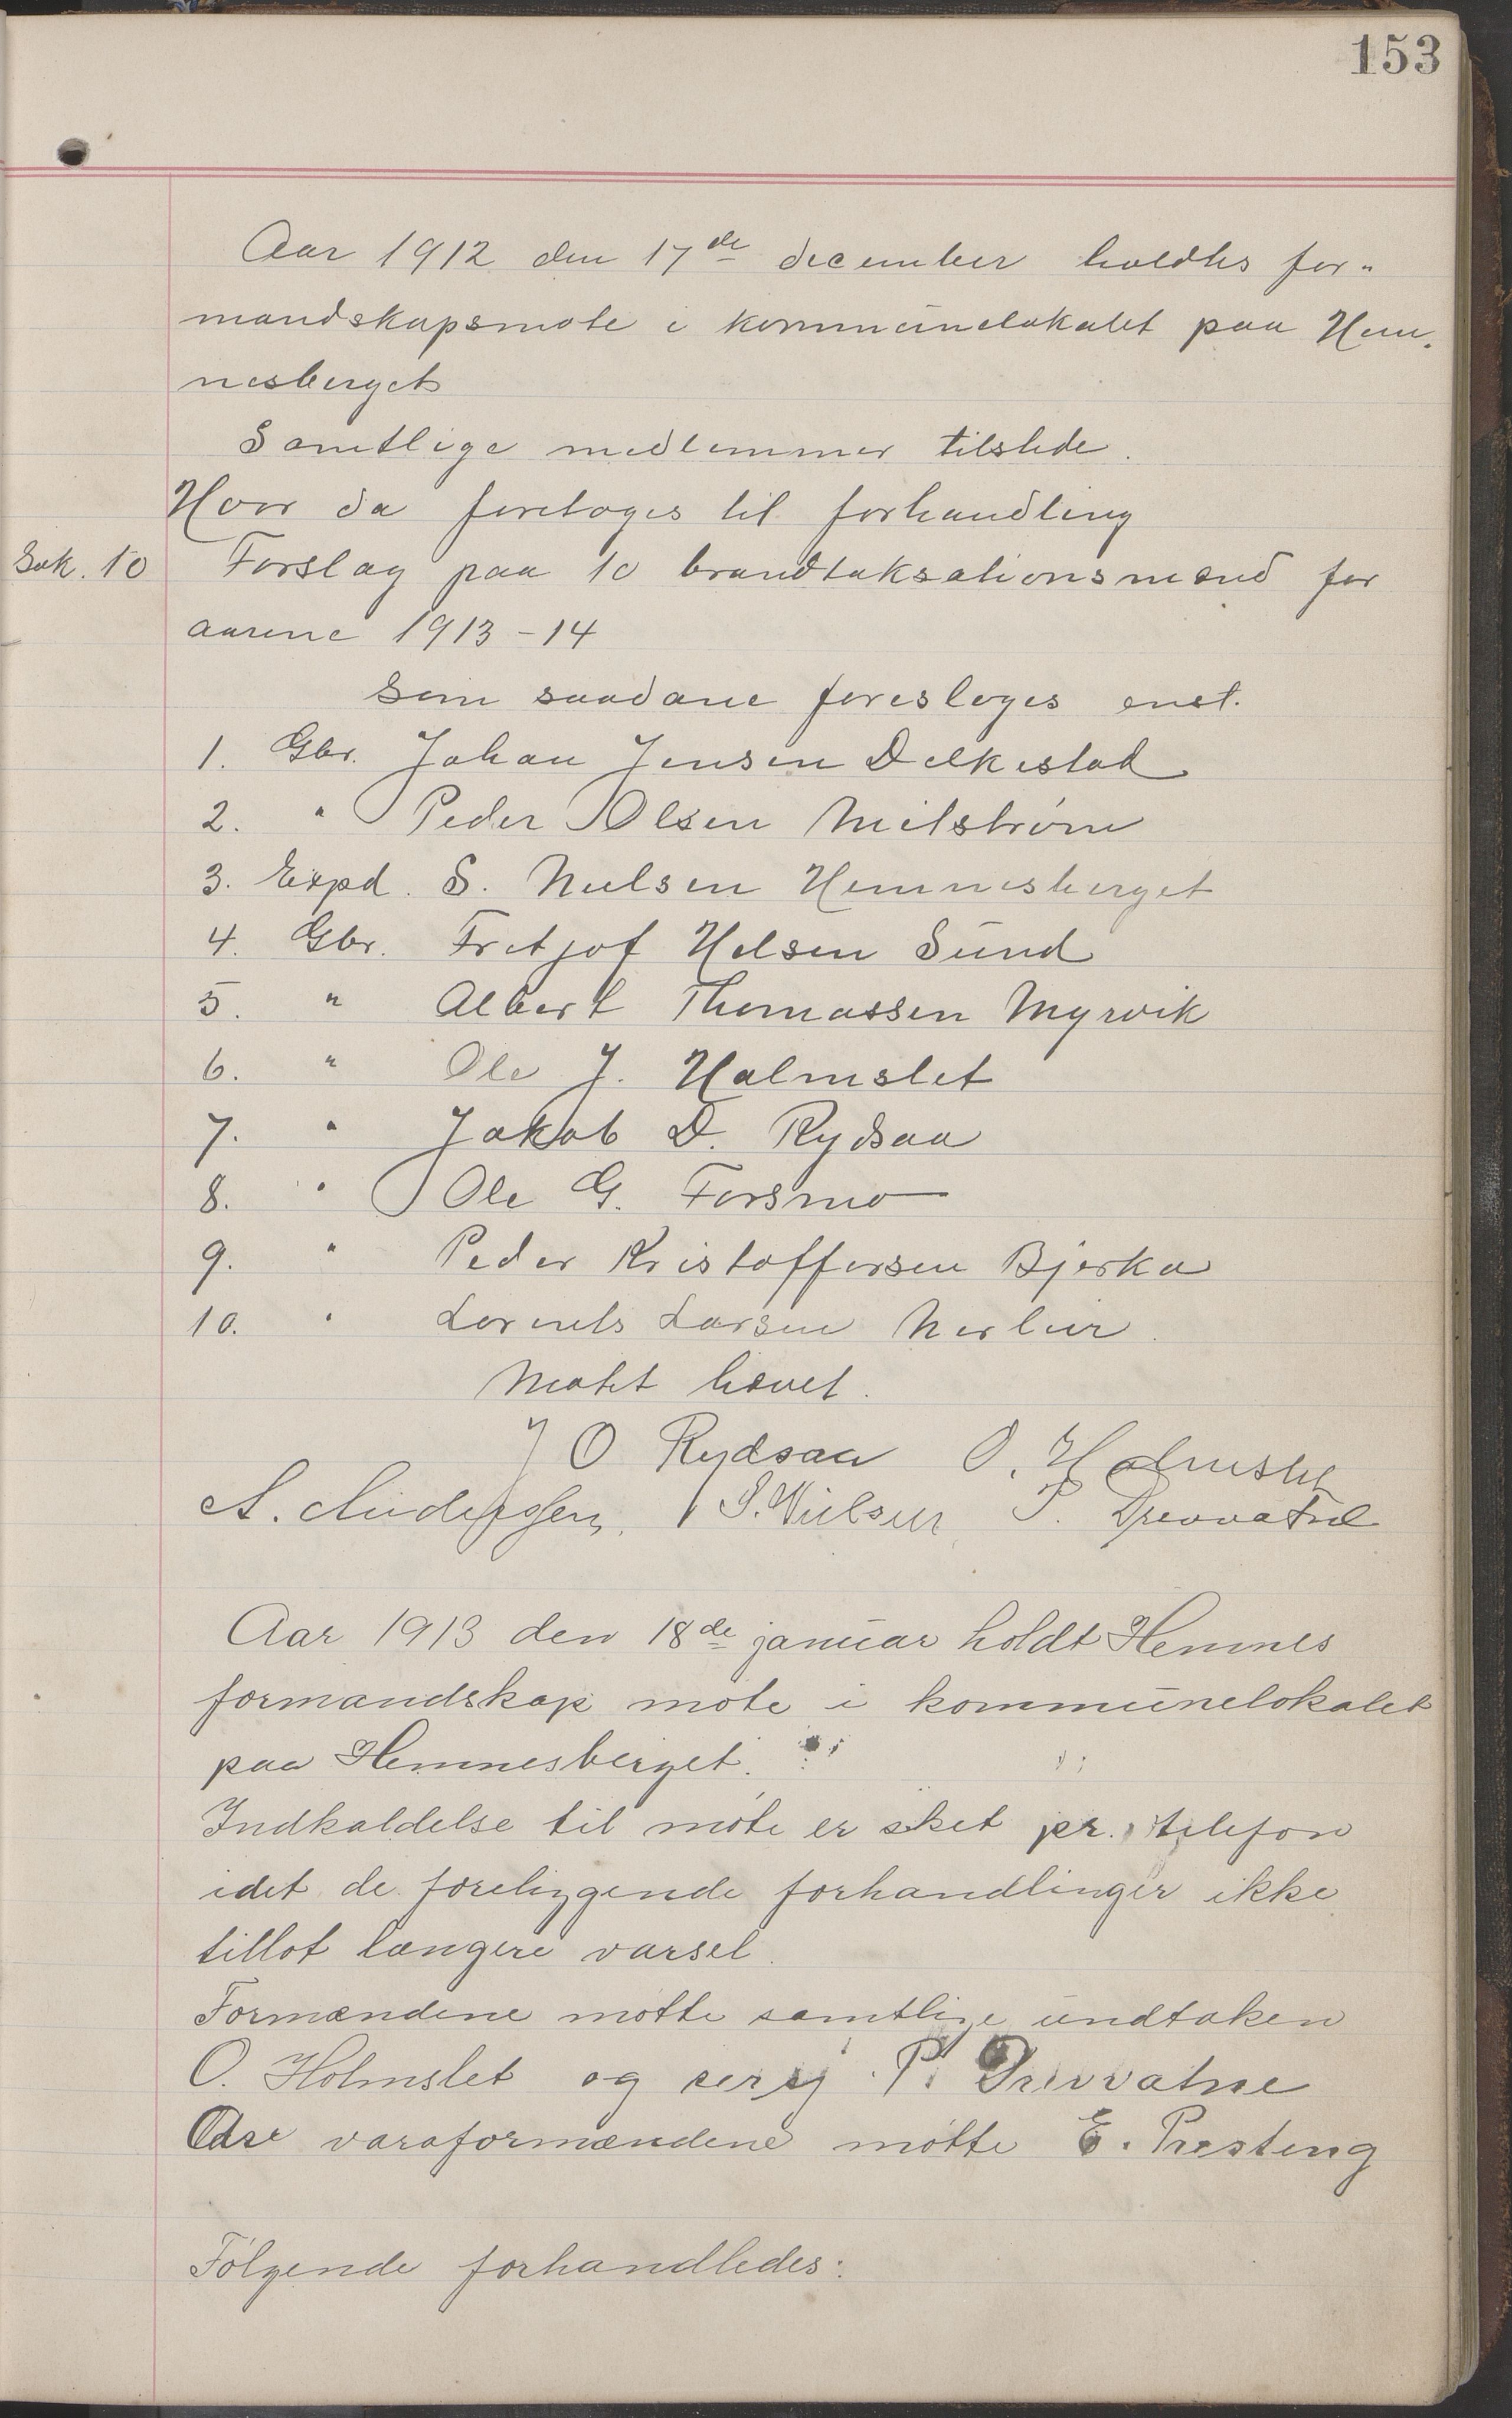 153
Aar 1912 den 17de december holdtes for-
mandskapsmøte i kommunelokalet paa Hem-
nesberget
Samtlige medlemmer tilstede.
Hvor da foretoges til forhandling
Sak. 10 Forslag paa 10 brandtaksationsmænd for
aarene 1913-14
Som saadane foresloges enst.
1. Gbr. Johan Jensen Delkestad
2. " Peder Olsen Milstrøm
3. Expd. S. Nielsen Hemnesberget
4. Gbr. Fretjof Nelsen Sund
5. " Albert Thomassen Myrvik
6. " Ole J. Halmslet
7. " Jakob D. Rydsaa
8. " Ole G. Forsmo
9. " Peder Kristoffersen Bjerka
10. " Lorents Larsen Nerleir.
Møtet hævet.
J O Rydsaa O. Holmslet
A. Anderssen. S. Nielsen P. Drevvatne
Aar 1913 den 18de januar holdt Hemnes
formandskap møte i kommunelokalet
paa Hemnesberget.
Indkaldelse til møte er sket pr. telefon
idet de foreliggende forhandlinger ikke
tillot længere varsel.
Formændene møtte samtlige undtaken
O. Holmslet og P. Drevvatne
Av varaformændene møtte E. Præsteng
Følgende forhandledes: